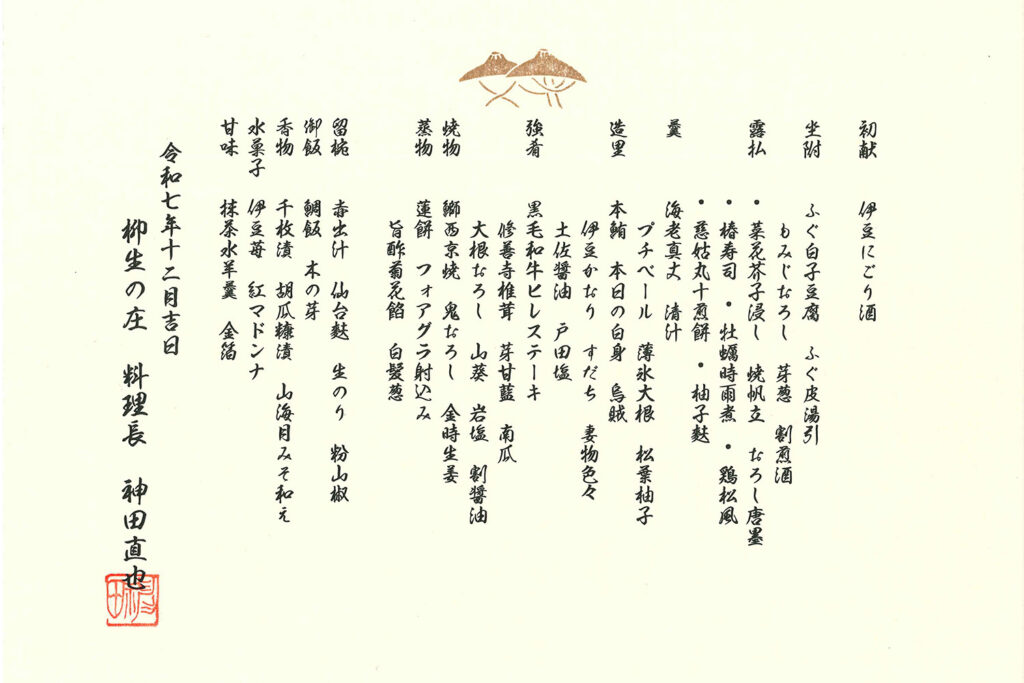 初献　伊豆にごり酒
坐附　ふぐ白子豆腐　ふぐ皮湯引
もみじおろし　芽葱　割煎酒
露払　・菜花芥子浸し　焼帆立　おろし唐墨
・椿寿司　・牡蠣時雨煮　・鶏松風
・慈姑丸十煎餅　・柚子麩
羹　海老真丈　清汁
プチベール　薄氷大根　松葉柚子
造里　本鮪　本日の白身　烏賊
伊豆かおり　すだち　妻物色々
土佐醤油　戸田塩
強肴　黒毛和牛ヒレステーキ
修善寺椎茸　芽甘藍　南瓜
大根おろし　山葵　岩塩　割醤油
焼物　鰤西京焼　鬼おろし　金時生姜
蒸物　蓮餅　フォアグラ射込み
旨酢菊花餡　白髪葱
留椀　赤出汁　仙台麩　生のり　粉山椒
御飯　鯛飯　木の芽
香物　千枚漬　胡瓜糠漬　山海月みそ和え
水菓子　伊豆苺　紅マドンナ
甘味　抹茶水羊羹　金箔
令和七年十二月吉日
柳生の庄　料理長　神田直也